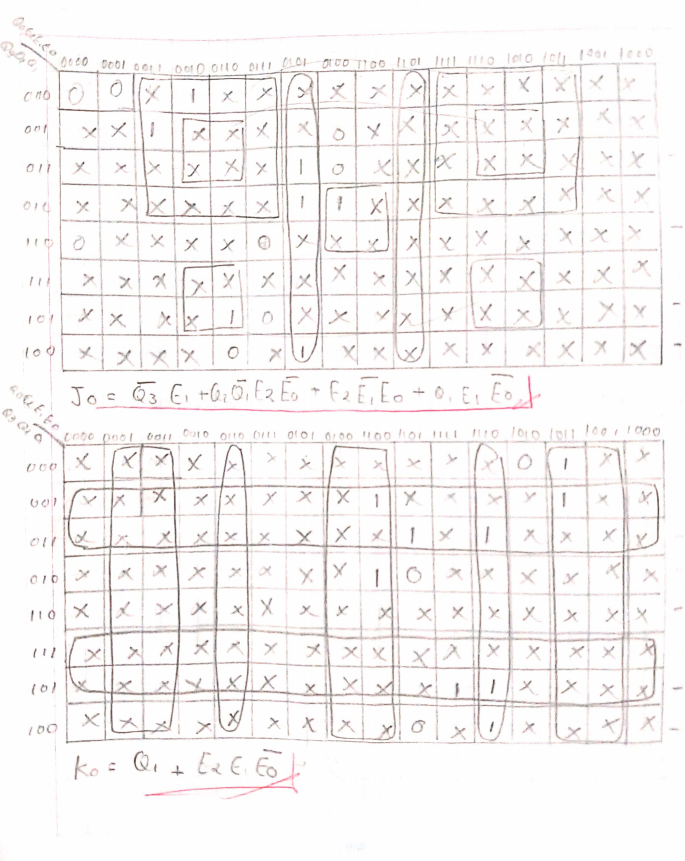 Q0E2E1E0
Q3Q2Q1
0000 0001 0011 0010 0110 0111 0101 0100 1100 1101 1111 1110 1010 1011 1001 1000
000 0 0 X 1 X X X X X X X X X X X X
001 X X 1 X X X X 0 X X X X X X X X
011 X X X X X X 1 0 X X X X X X X X
010 X X X X X X 1 1 X X X X X X X X
110 0 X X X X 0 X X X X X X X X X X
111 X X X X X X X X X X X X X X X X
101 X X X X 1 0 X X X X X X X X X X
100 X X X X 0 X 1 X X X X X X X X X
J0 = Q̅3 E1 + Q2 Q̅1 E2 E̅0 + E2 E̅1 E0 + Q1 E1 E̅0
0000 0001 0011 0010 0110 0111 0101 0100 1100 1101 1111 1110 1010 1011 1001 1000
000 X X X X X X X X X X X X 0 1 X X
001 X X X X X X X X 1 X X X X 1 X X
011 X X X X X X X X X 1 X 1 X X X X
010 X X X X X X X X 1 0 X X X X X X
110 X X X X X X X X X X X X X X X X
111 X X X X X X X X X X X X X X X X
101 X X X X X X X X X X 1 1 X X X X
100 X X X X X X X X X 0 X 1 X X X X
K0 = Q1 + E2 E1 E̅0